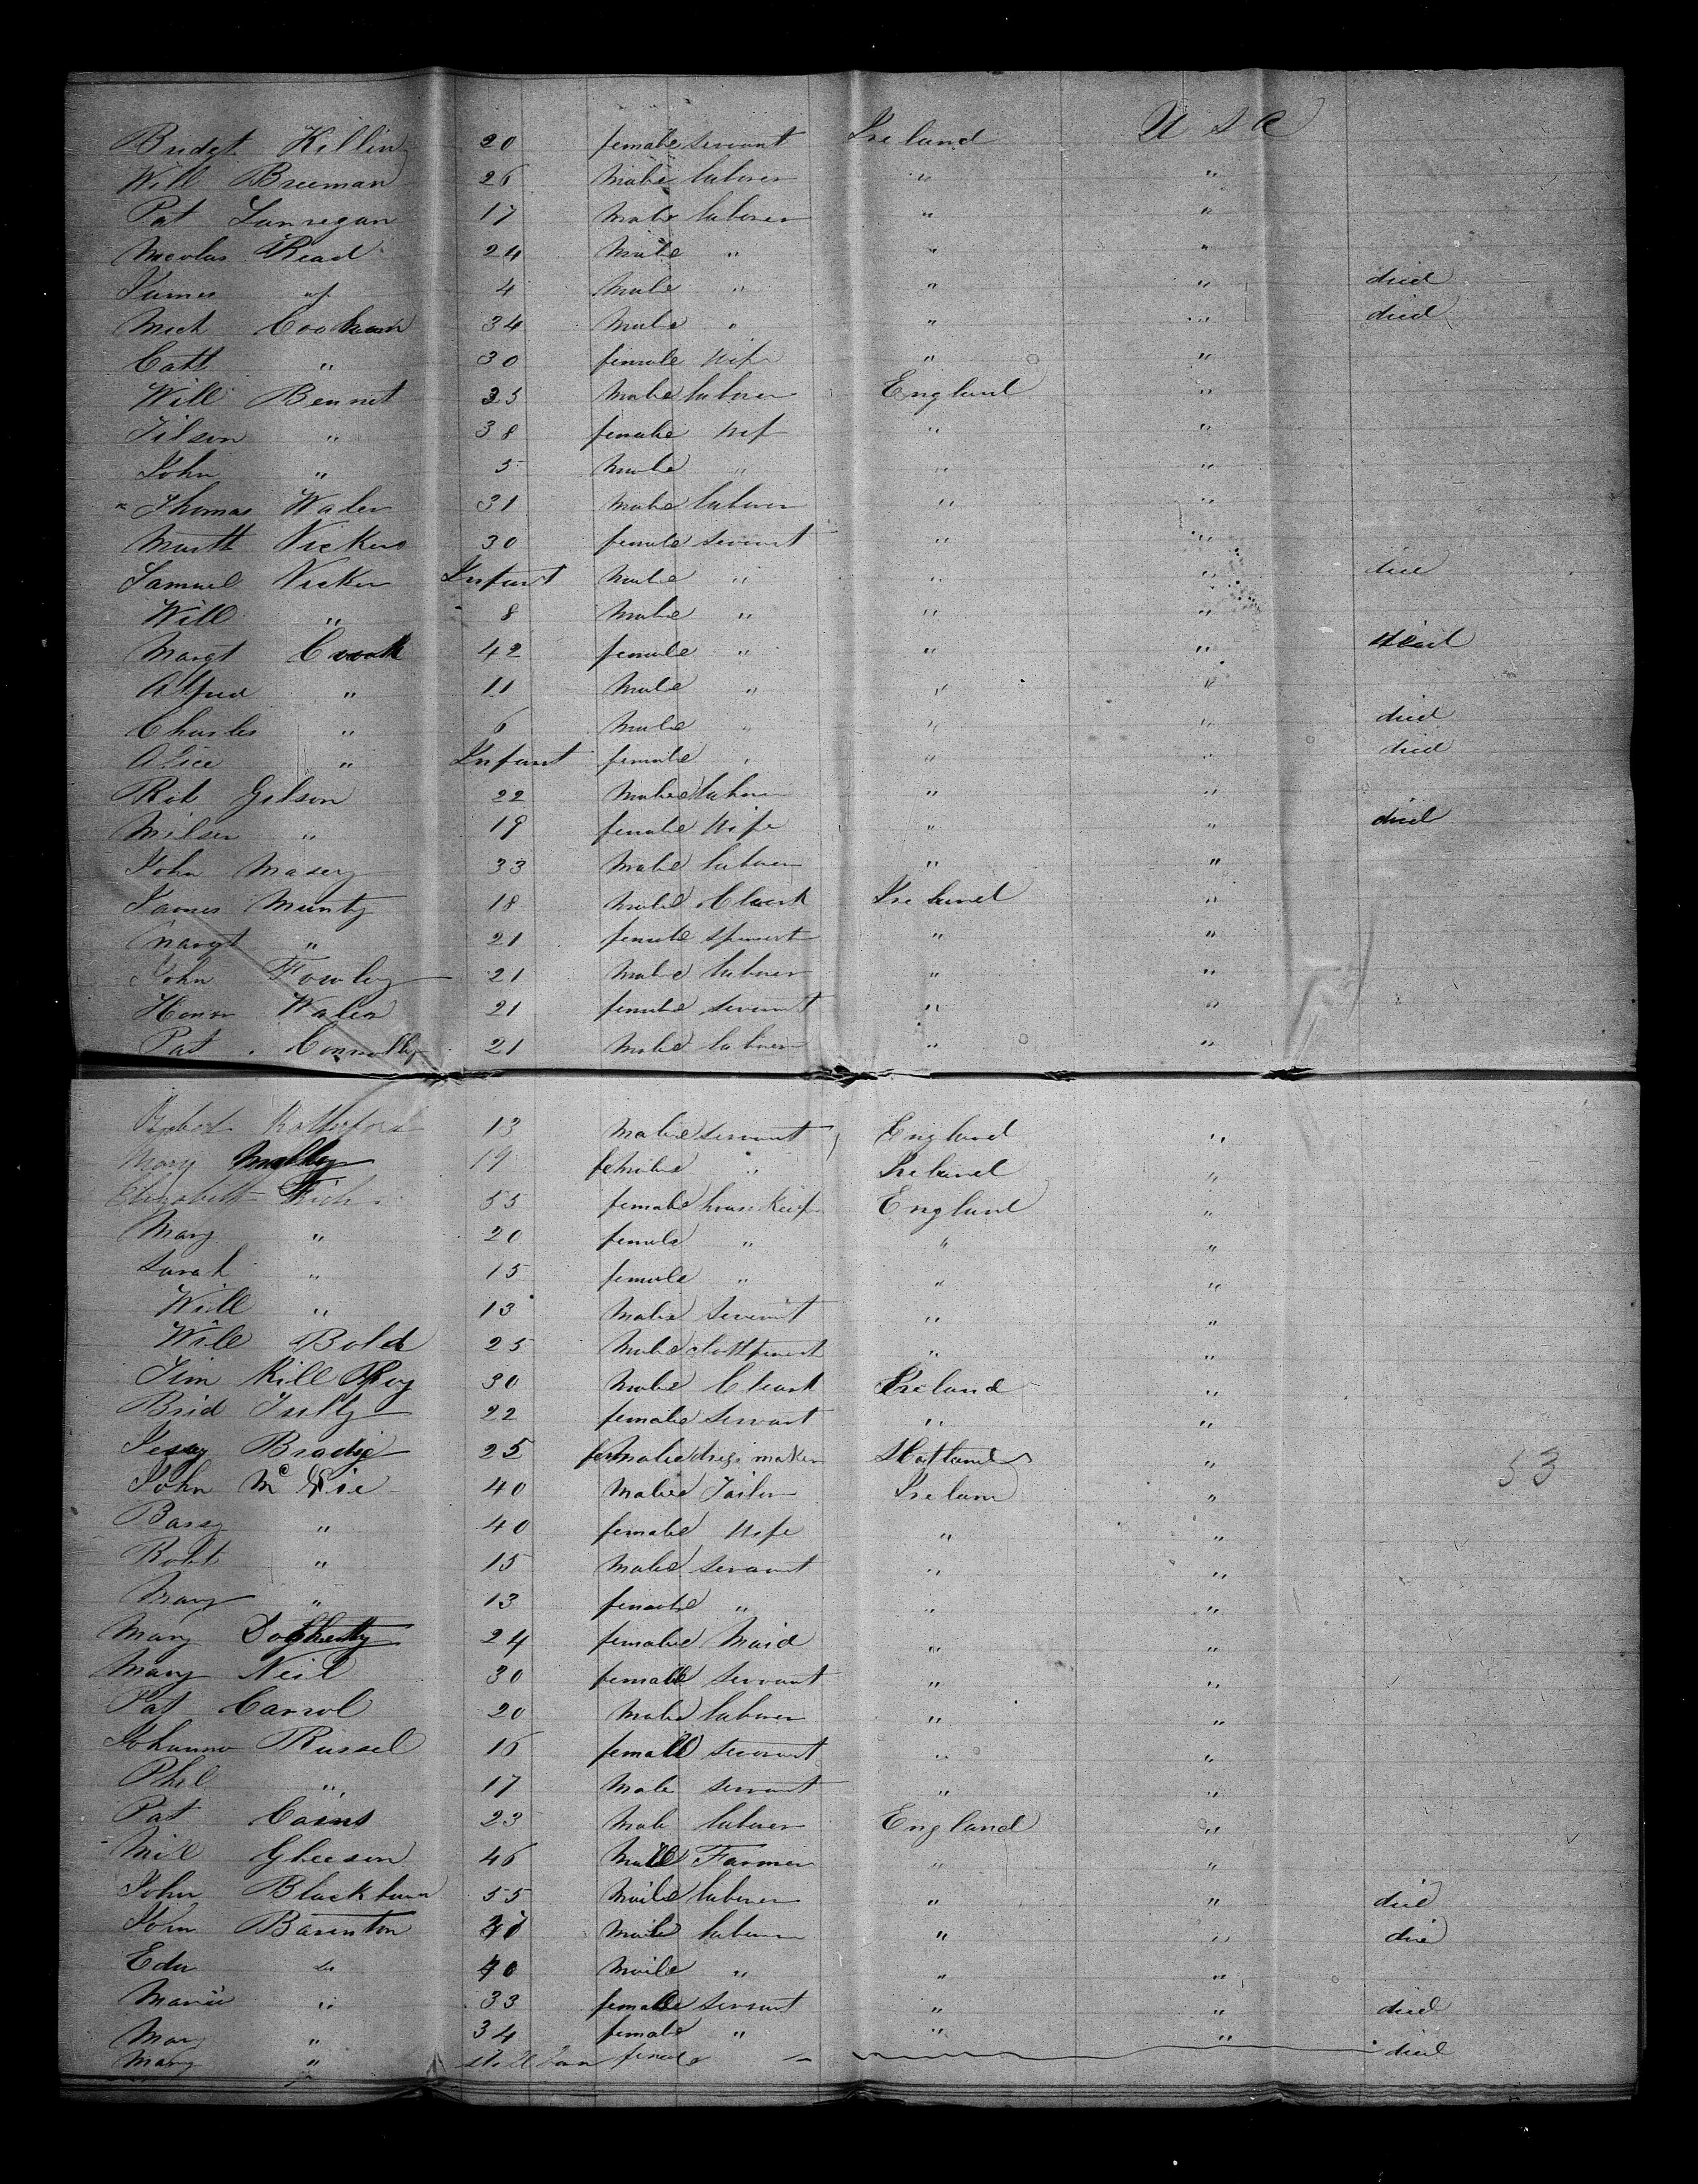 Bridgt Killin 20 female servant Ireland U S A
Will Breeman 26 Male laborer " "
Pat Lannegan 17 Male laborer " "
Nicolas Read 24 Male " " "
James " 4 Male " " " died
Mich 34 Male " " " died
Cath " 30 female Wife " "
Will Bennet 35 Male laborer England "
" 38 female Wif " "
John " 5 Male " " "
Thomas Waler 31 Male laborer " "
Marth Vickers 30 female servant " "
Samuel Vicker Infant Male " " " died
Will " 8 Male " " "
Margt Cook 42 female " " "
Alfred " 11 Male " " "
Charles " 6 Male " " " died
Alice " Infant female " " " died
Rob Gilson 22 Male labor " "
" 19 female Wife " " died
John Masey 33 Male laborer " "
James Munty 18 Male Cleark Ireland "
Margt " 21 female " "
John Fowley 21 Male laborer " "
Honor Waler 21 female servant " "
Pat Connolly 21 Male laborer " "
Robert Rotherford 13 Male servant England "
Mary Malley 19 female " Ireland "
Elizabeth 55 female house Keep England "
Mary " 20 female " " "
Sarah " 15 female " " "
Will " 13 Male servant " "
Will Bold 25 Male " "
Jim Kill Roy 30 Male Cleark Ireland "
Brid Tully 22 female servant " "
Jessy Bradye 25 female dress maker Scotland "
John Mc 40 Male Tailor Ireland " 53
" 40 female Wife " "
Robt " 15 Male servant " "
Mary " 13 female " " "
Mary Dogherty 24 female Maid " "
Mary Neil 30 female servant " "
Pat Carrol 20 Male laborer " "
Johanna Russel 16 female servant " "
Phil " 17 Male servant " "
Pat Cains 23 Male laborer England "
Mill Gleeson 46 Male Farmer " "
John Blackburn 55 Male laborer " " died
John Barinton Male laborer " " died
Edw " 40 Male " " "
Maria " 33 female servant " " died
Mary " 34 female " " "
Mary " still born female died